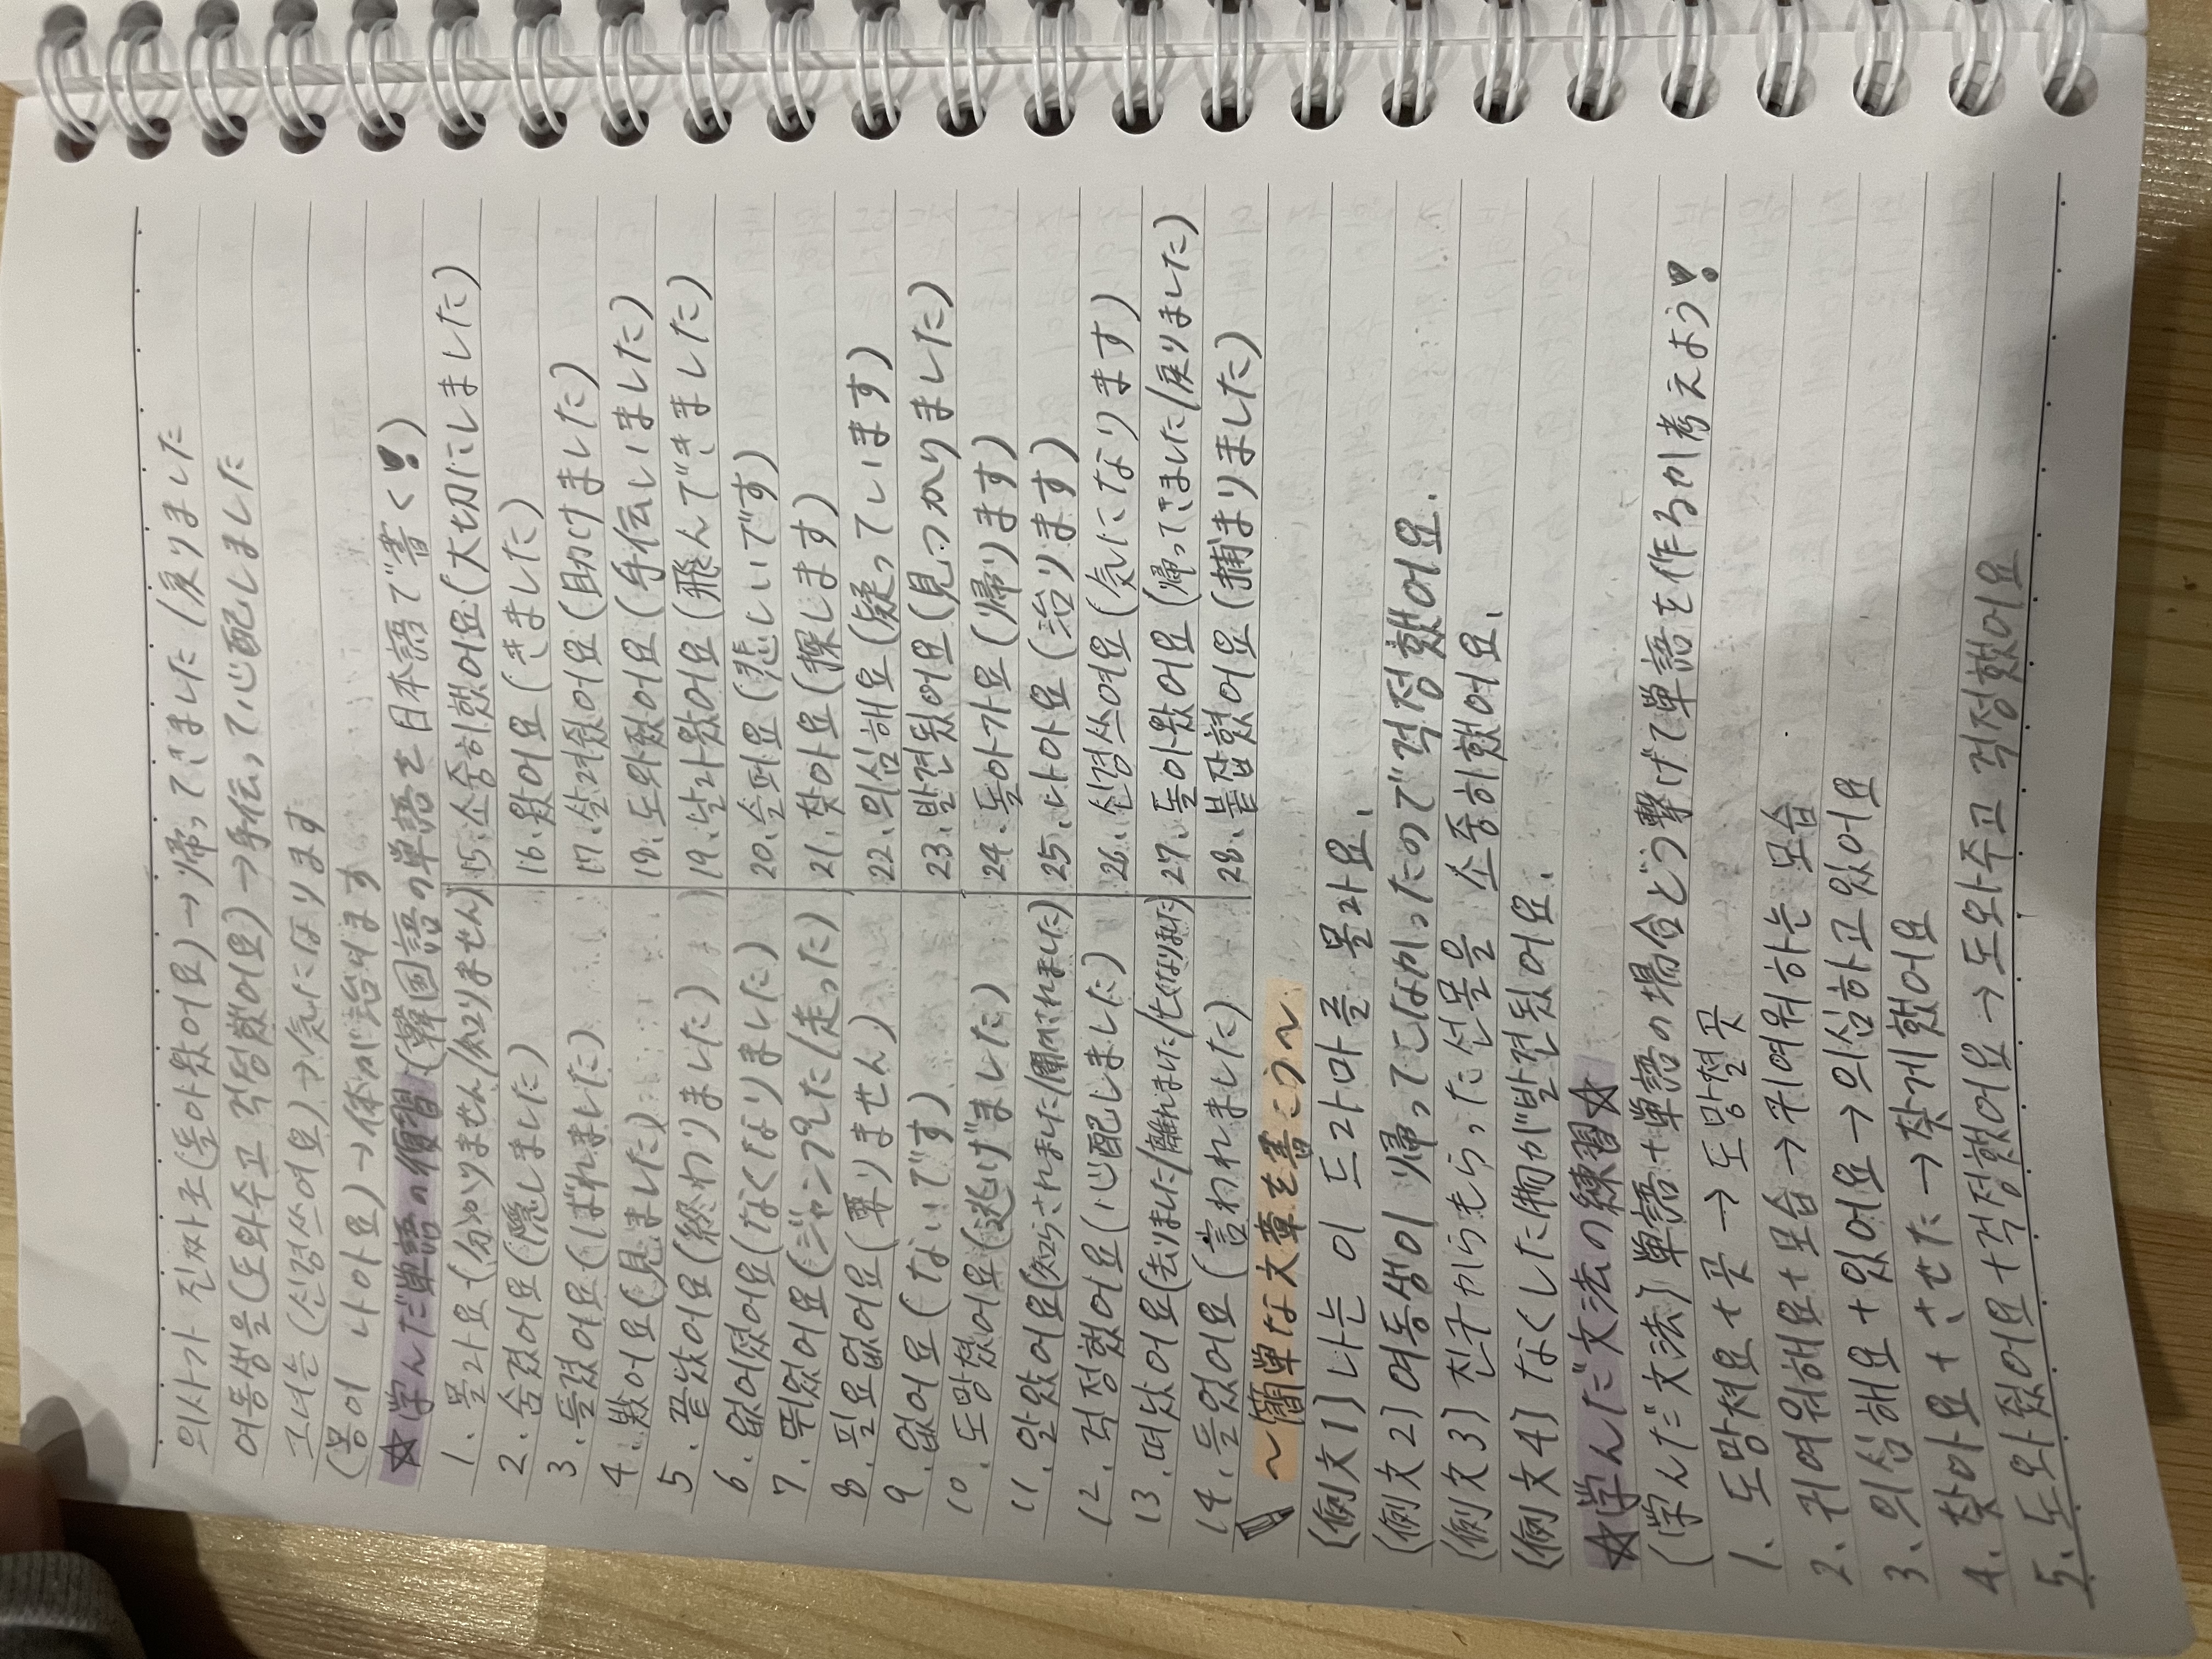 의사가 진짜로(돌아왔어요)→帰ってきました/戻りました
여동생을(도와주고 걱정했어요)→手伝って心配しました
그녀는(신경쓰여요)→気になります
(몸이 나아요)→体が治ります
☆学んだ単語の復習(韓国語の単語を日本語で書く!)
1. 몰라요(分かりません/知りません)
2. 숨겼어요(隠しました)
3. 들켰어요(ばれました)
4. 봤어요(見ました)
5. 끝났어요(終わりました)
6. 없어졌어요(なくなりました)
7. 뛰었어요(ジャンプした/走った)
8. 필요없어요(要りません)
9. 없어요(ないです)
10. 도망쳤어요(逃げました)
11. 알았어요(知らされました/聞かされました)
12. 걱정했어요(心配しました)
13. 떠났어요(去りました/離れました/亡くなりました)
14. 들었어요(言われました)
15. 소중히했어요(大切にしました)
16. 왔어요(きました)
17. 살려줬어요(助けました)
18. 도와줬어요(手伝いました)
19. 날라왔어요(飛んできました)
20. 슬퍼요(悲しいです)
21. 찾아요(探します)
22. 의심해요(疑っています)
23. 발견됐어요(見つかりました)
24. 돌아가요(帰ります)
25. 나아요(治ります)
26. 신경쓰여요(気になります)
27. 돌아왔어요(帰ってきました/戻りました)
28. 붙잡혔어요(捕まりました)
~簡単な文章を書こう~
(例文1) 나는 이 드라마를 몰라요.
(例文2) 여동생이 帰ってこなかったので 걱정했어요.
(例文3) 친구からもらった선물을 소중히했어요.
(例文4) なくした物が발견됐어요.
☆学んだ文法の練習☆
(学んだ文法) 単語+単語の場合どう繋げて単語を作るか考えよう!
1. 도망쳐요+곳→도망쳘곳
2. 귀여워해요+모습→귀여워하는 모습
3. 의심해요+있어요→의심하고있어요
4. 찾아요+させた→찾게했어요
5. 도와줬어요+걱정했어요→도와주고 걱정했어요